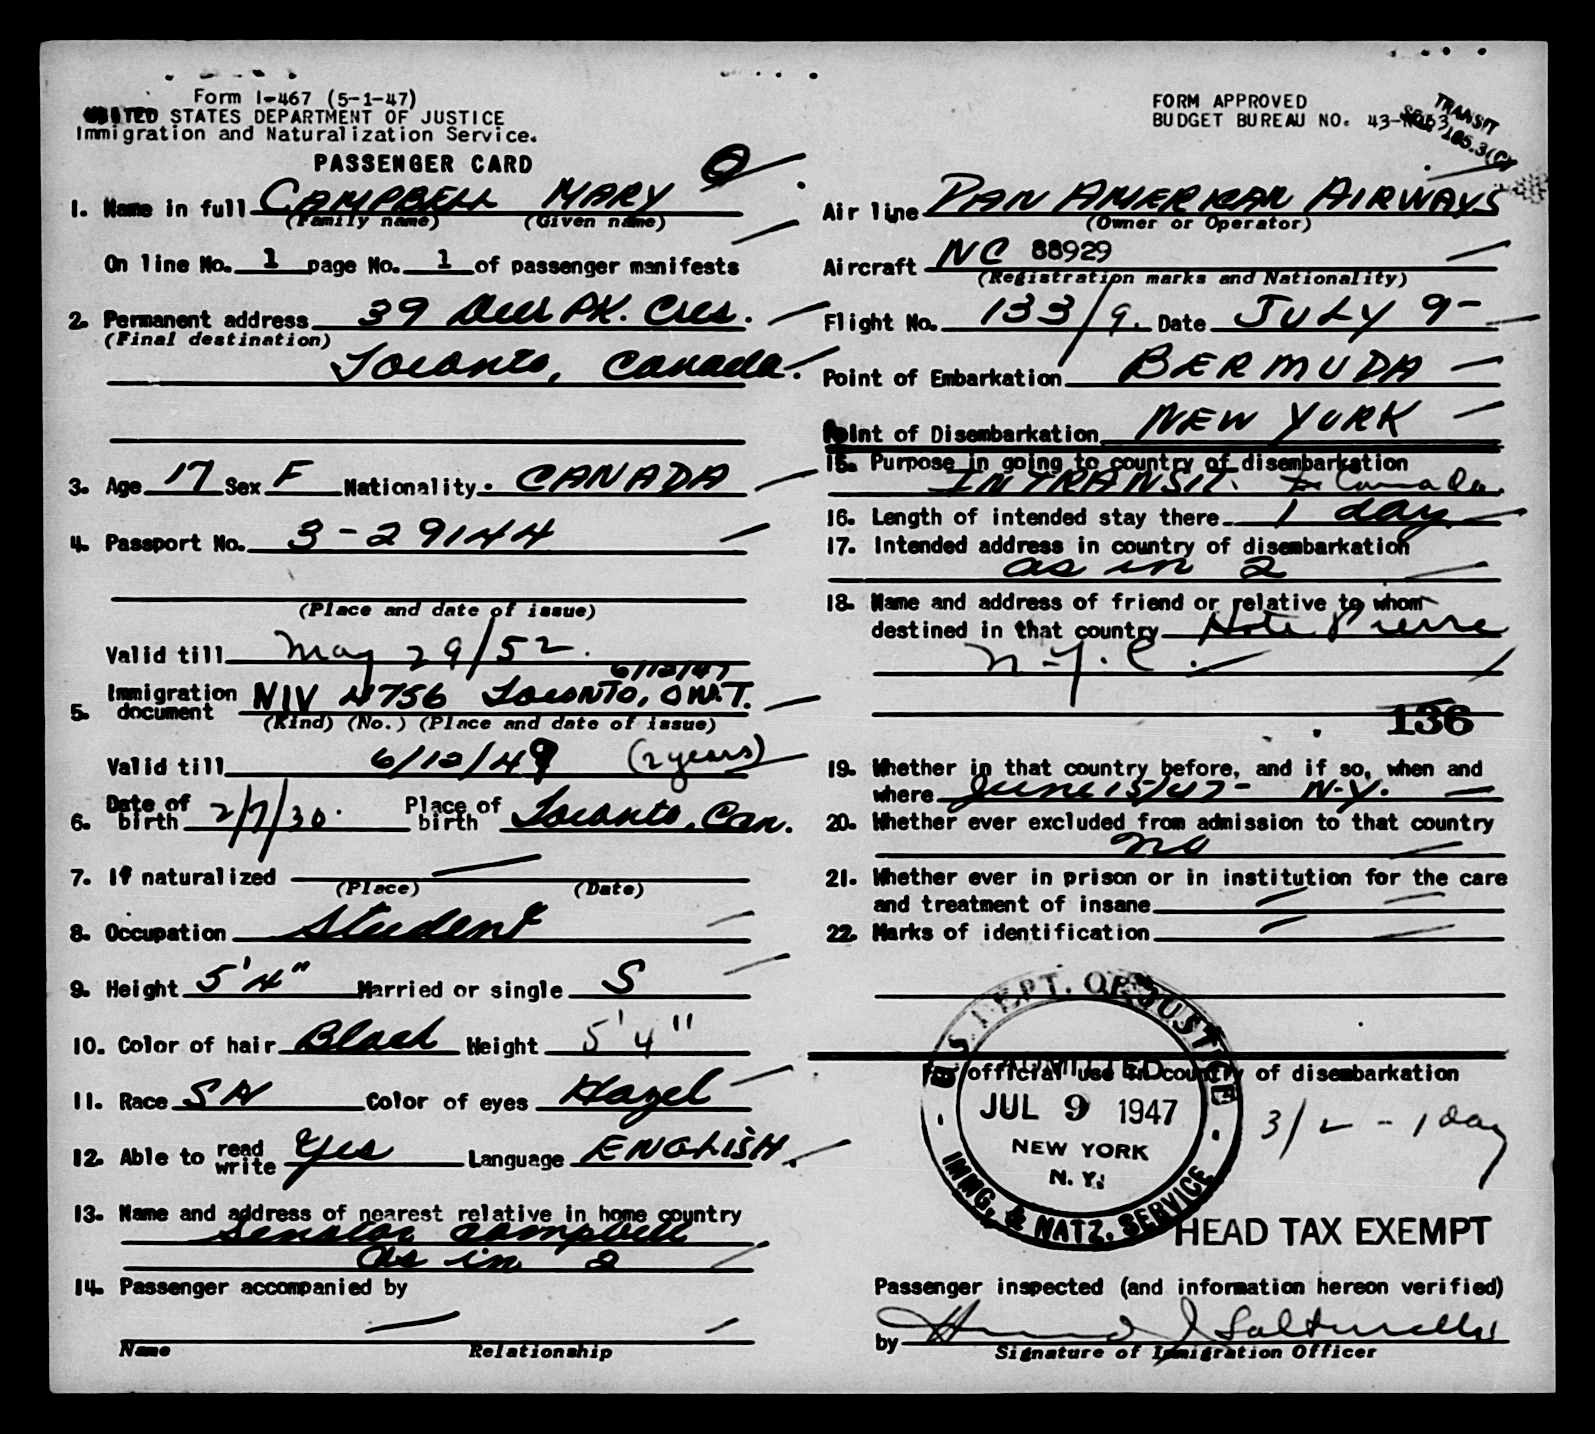 Form I-467 (5-1-47)
UNITED STATES DEPARTMENT OF JUSTICE
Immigration and Naturalization Service.
PASSENGER CARD
1. Name in full CAMPBELL MARY
(Family name) (Given name)
On line No. 1 page No. 1 of passenger manifests
2. Permanent address 39 Deer PK. Cres.
(Final destination)
Toronto, Canada.
3. Age 17 Sex F Nationality. CANADA
4. Passport No. 3-29144
(Place and date of issue)
Valid till May 29/52.
6/12/47
5. Immigration document NIV #756 Toronto, ONT.
(Kind) (No.) (Place and date of issue)
Valid till 6/12/49 (2 years)
6. Date of birth 2/7/30. Place of birth Toronto, Can.
7. If naturalized
(Place) (Date)
8. Occupation Student
9. Height 5'4" Married or single S
10. Color of hair Black Weight 5'4"
11. Race Color of eyes Hazel
12. Able to read write Yes Language ENGLISH.
13. Name and address of nearest relative in home country
Senator Campbell
as in 2
14. Passenger accompanied by
Name Relationship
FORM APPROVED
BUDGET BUREAU NO. 43-
TRANSIT
SEC. 165.3(C)
Air line PAN AMERICAN AIRWAYS
(Owner or Operator)
Aircraft NC 88929
(Registration marks and Nationality)
Flight No. 133/9. Date JULY 9-
Point of Embarkation BERMUDA
Point of Disembarkation NEW YORK
15. Purpose in going to country of disembarkation
IN TRANSIT. to Canada.
16. Length of intended stay there 1 day
17. Intended address in country of disembarkation
as in 2
18. Name and address of friend or relative to whom
destined in that country Hotel Pierre
N.Y.C.
136
19. Whether in that country before, and if so, when and
where June 15/47- N.Y.
20. Whether ever excluded from admission to that country
no
21. Whether ever in prison or in institution for the care
and treatment of insane
22. Marks of identification
For official use in country of disembarkation
U.S. DEPT. OF JUSTICE
ADMITTED
JUL 9 1947
NEW YORK
N. Y.
IMMG. & NATZ. SERVICE
3/2 - 1 day
HEAD TAX EXEMPT
Passenger inspected (and information hereon verified)
by
Signature of Immigration Officer